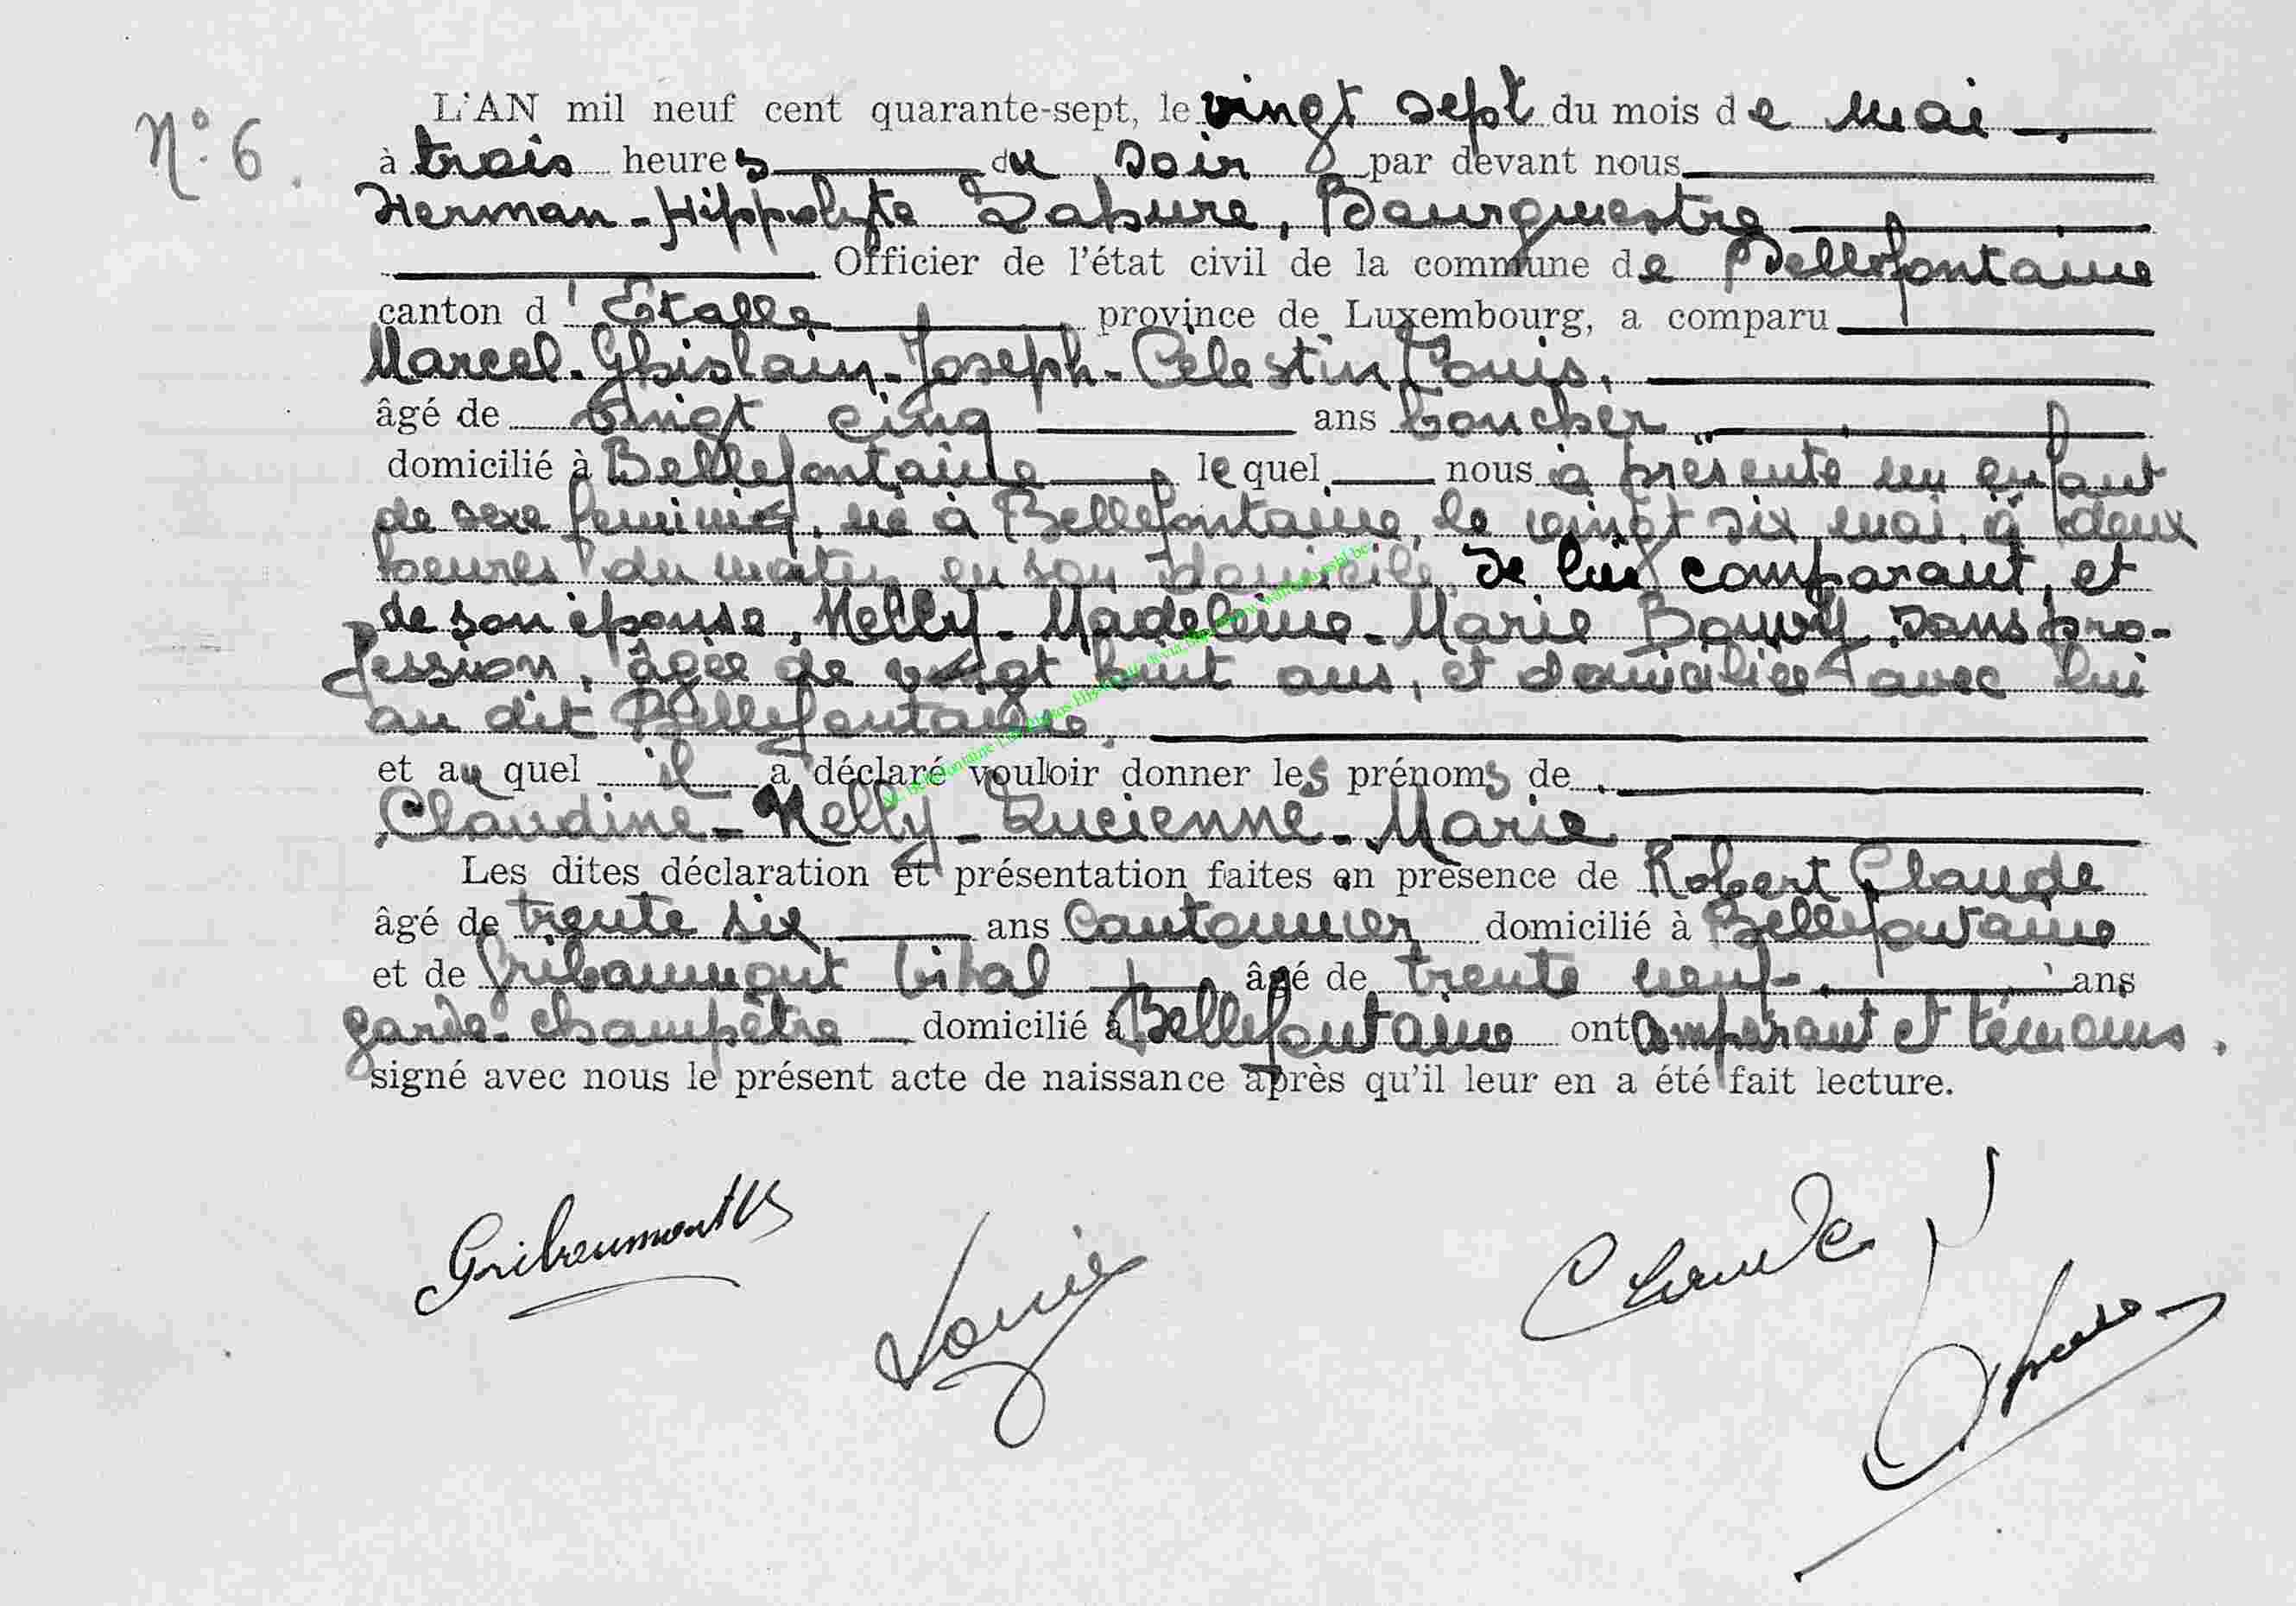 N° 6.
L'AN mil neuf cent quarante-sept, le vingt sept du mois de mai
à trois heures du soir par devant nous
Herman-Hippolyte Labure, Bourgmestre
Officier de l'état civil de la commune de Bellefontaine
canton d'Etalle province de Luxembourg, a comparu
Marcel-Ghislain-Joseph-Célestin Louis,
âgé de vingt cinq ans boucher
domicilié à Bellefontaine lequel nous a présenté un enfant
de sexe féminin, né à Bellefontaine, le vingt six mai, à deux
heures du matin en son domicile, de lui comparant, et
de son épouse, Nelly-Madeleine-Marie Bouvy sans pro-
fession, âgée de vingt huit ans, et domiciliée avec lui
au dit Bellefontaine.
et au quel il a déclaré vouloir donner les prénoms de
Claudine-Nelly-Lucienne-Marie
Les dites déclaration et présentation faites en présence de Robert Claude
âgé de trente six ans Cantonnier domicilié à Bellefontaine
et de Gribaumont Vital âgé de trente neuf ans
garde-champêtre domicilié à Bellefontaine ont comparant et témoins.
signé avec nous le présent acte de naissance après qu'il leur en a été fait lecture.
Gribaumont V
Louis
Claude